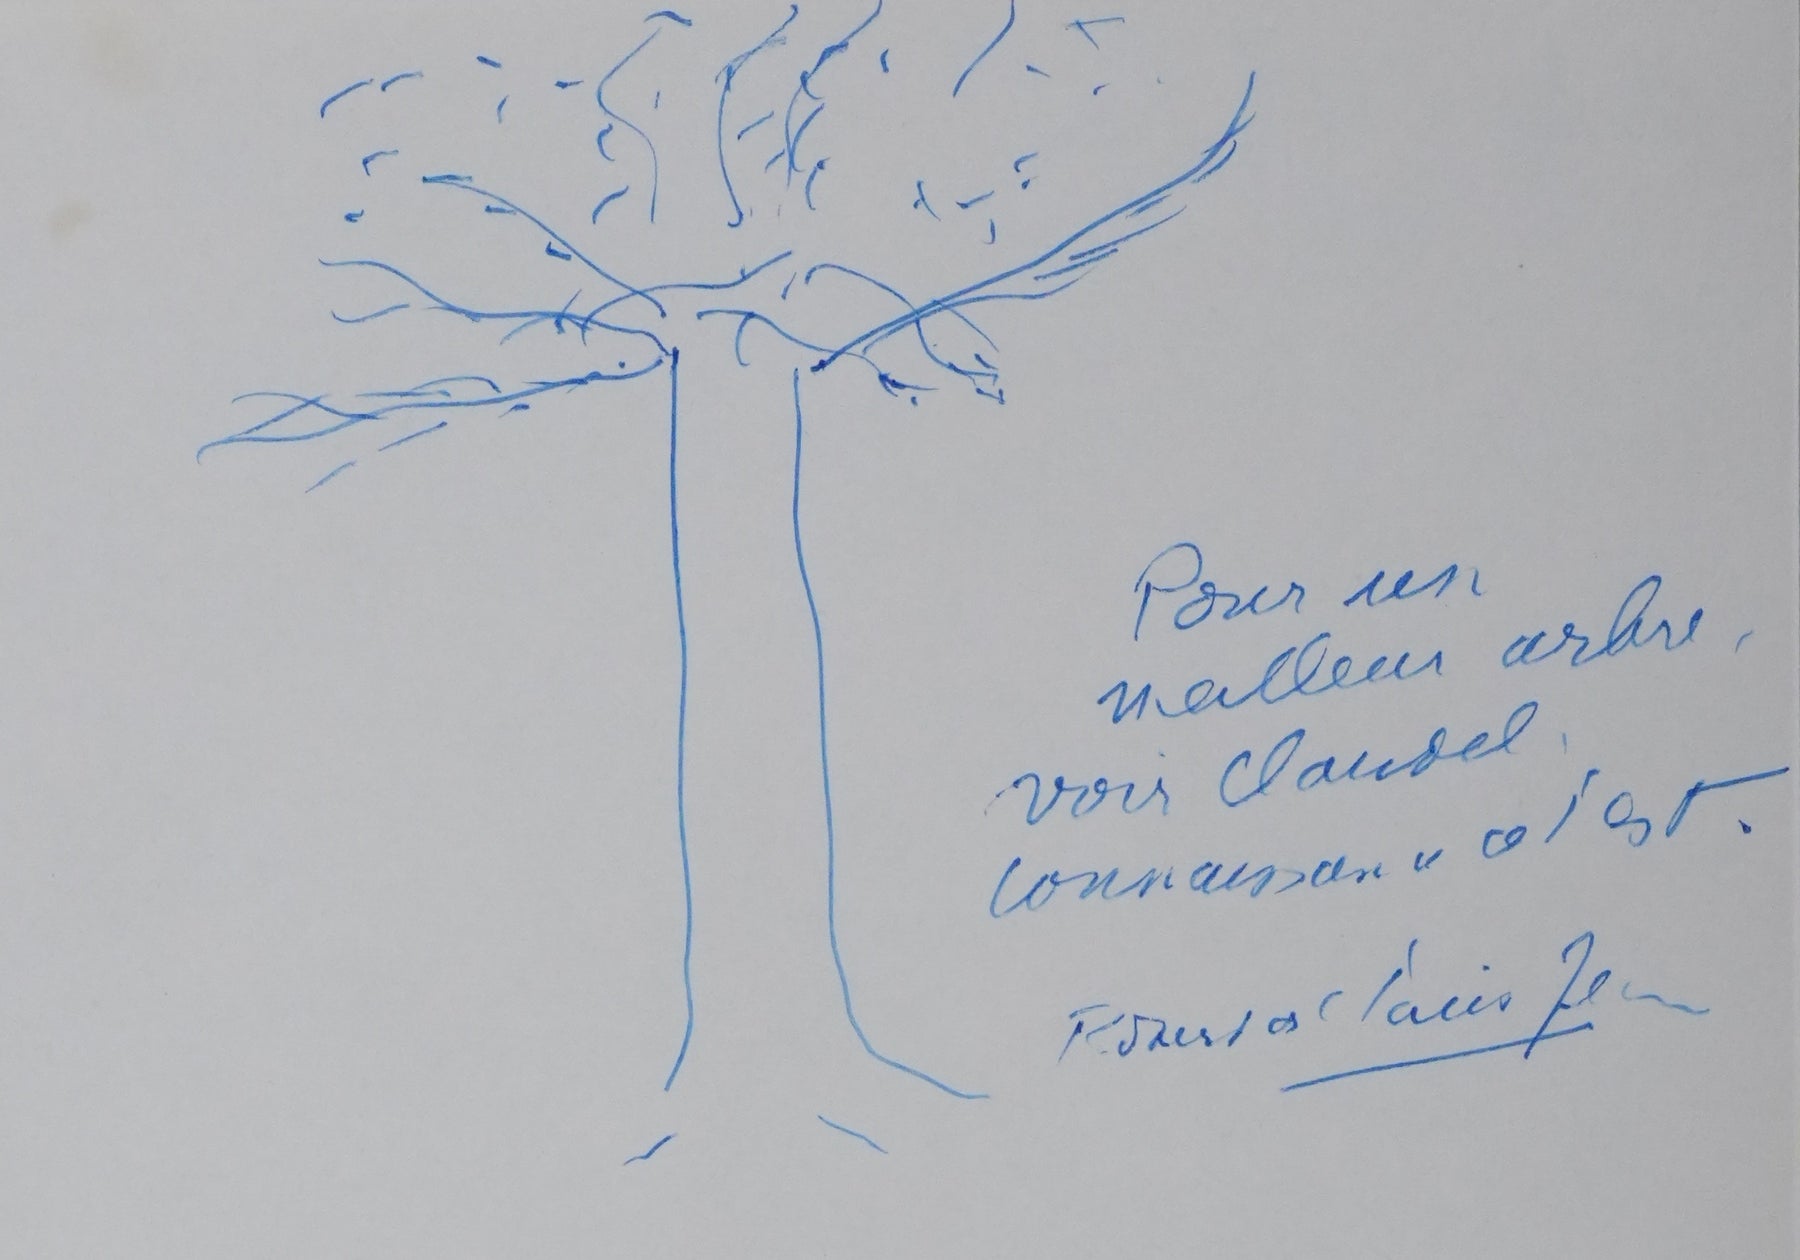 Pour un
meilleur arbre,
voir Claudel.
Connaissance de l'est.
Louis Jean